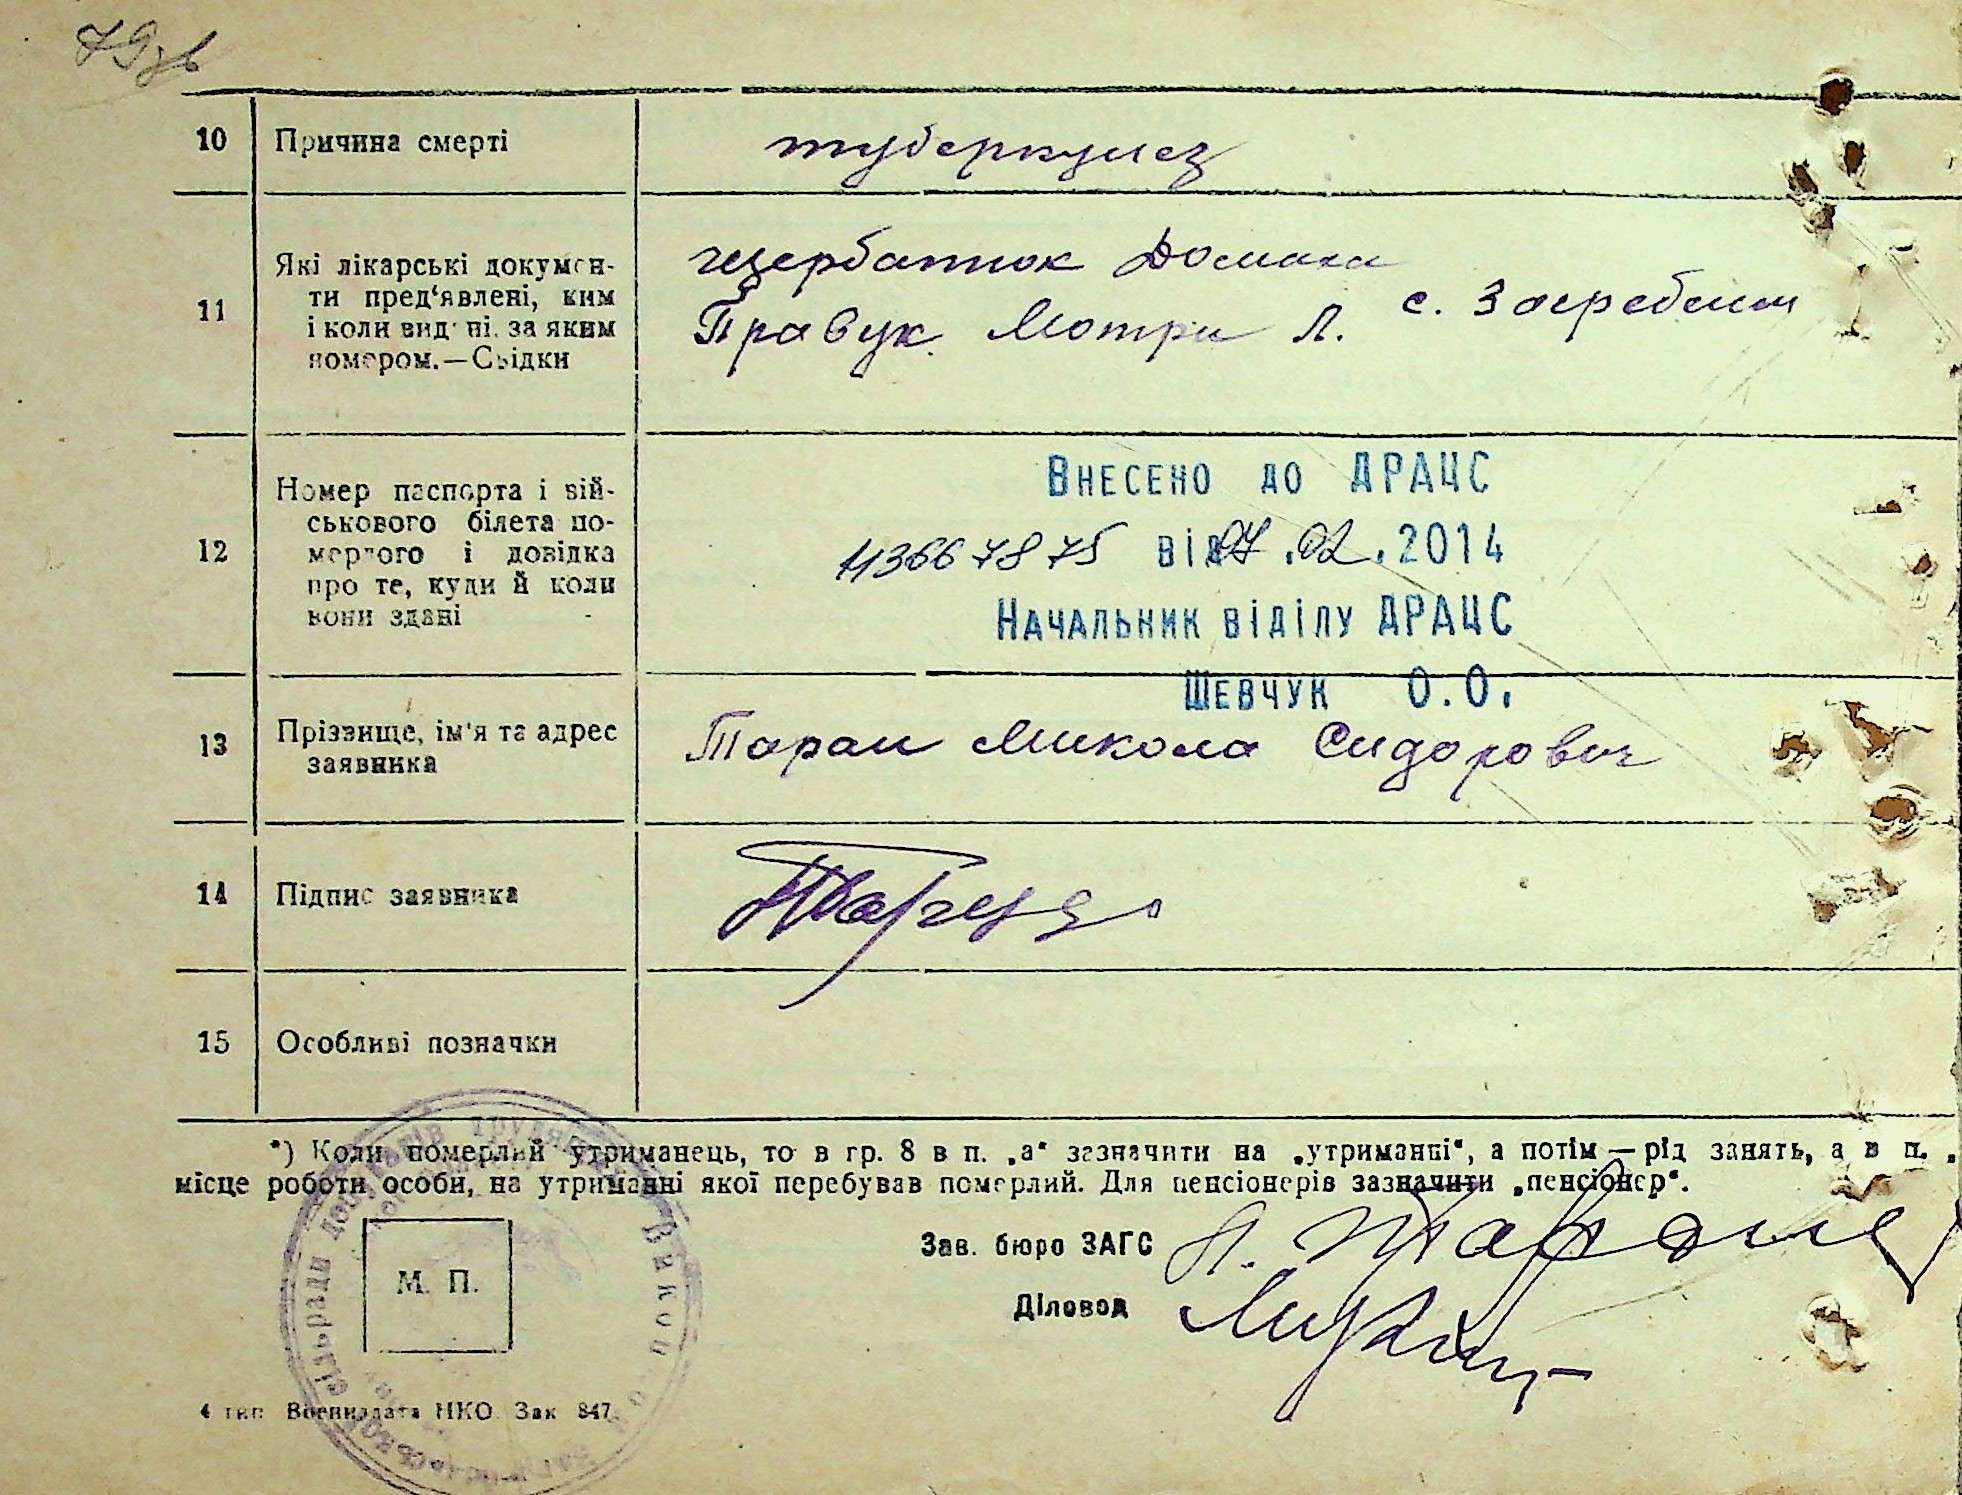 79зв
10 Причина смерті туберкулез
11 Які лікарські докумен-
ти пред'явлені, ким
і коли видані, за яким
номером.—Свідки
Щербатюк Домаха
Правук Мотри Л. с. Загребелля
12 Номер паспорта і вій-
ськового білета по-
мерлого і довідка
про те, куди й коли
вони здані
Внесено до ДРАЦС
11366 78 75 від 07.02.2014
Начальник відділу ДРАЦС
Шевчук О.О.
13 Прізвище, ім'я та адрес
заявника
Таран Микола Сидорович
14 Підпис заявника
15 Особливі позначки
*) Коли померлий утриманець, то в гр. 8 в п. „а“ зазначити на „утриманні“, а потім — рід занять, а в п.
місце роботи особи, на утриманні якої перебував померлий. Для пенсіонерів зазначити „пенсіонер“.
Зав. бюро ЗАГС
Діловод
М. П.
4 тип Воениздата НКО. Зак 847